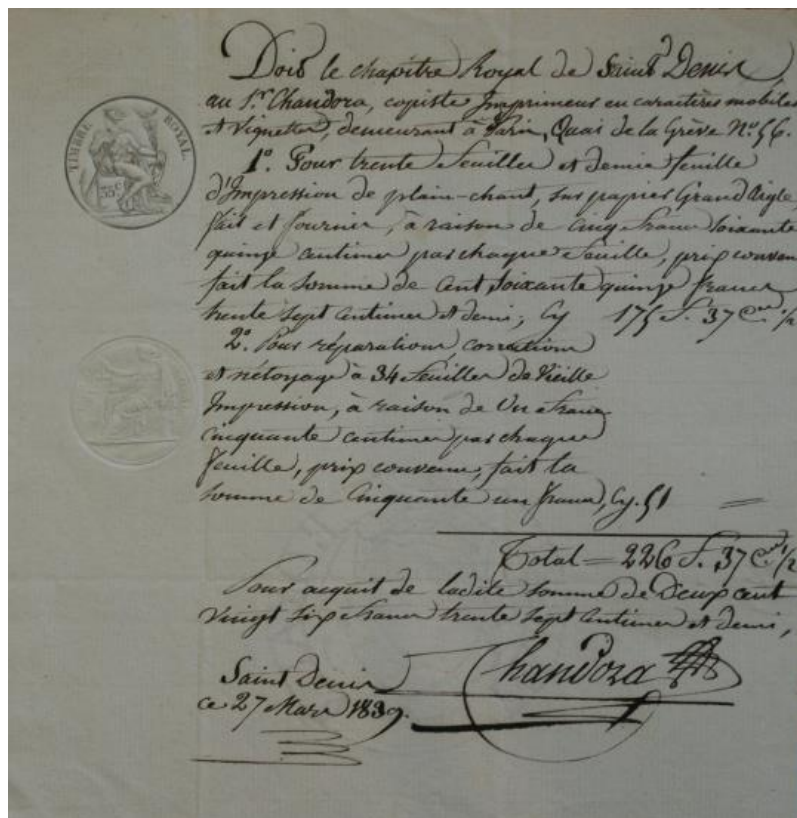 Doit le chapitre Royal de Saint Denis,
au Sr. Chandora, copiste Imprimeur en caractères mobiles
et Vignettes, demeurant à Paris, Quai de la Grève No. 56.
1o. Pour trente feuilles et demie feuille
d'Impression de plain-chant, sur papier Grand Aigle
fait et fournies, à raison de cinq francs soixante
quinze centimes par chaque feuille, prix conven
fait la somme de Cent soixante quinze francs
trente sept centimes et demi; Cy 175 f. 37 Ces. 1/2
2o. Pour réparations, corrections
et nétoyage à 34 feuilles de Vieille
Impression, à raison de Un franc
cinquante centimes par chaque
feuille, prix convenu, fait la
somme de Cinquante un francs, Cy. 51 =
Total = 226 f. 37 Ces. 1/2
Pour acquit de ladite somme de Deux cent
vingt six francs trente sept centimes et demi,
Chandora
Saint Denis
ce 27 Mars 1839.
TIMBRE ROYAL
35 c.